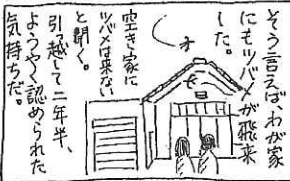 そう言えば、わが家
にもツバメが飛来
した。
空き家に
ツバメは来ない
と聞く。
引っ越して二年半、
ようやく認められた
気持ちだ。